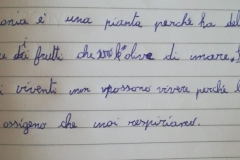 onia è una pianta perchè ha del
dei frutti che olive di mare,
i viventi non possono vivere perchè l
ossigeno che noi respiriamo.